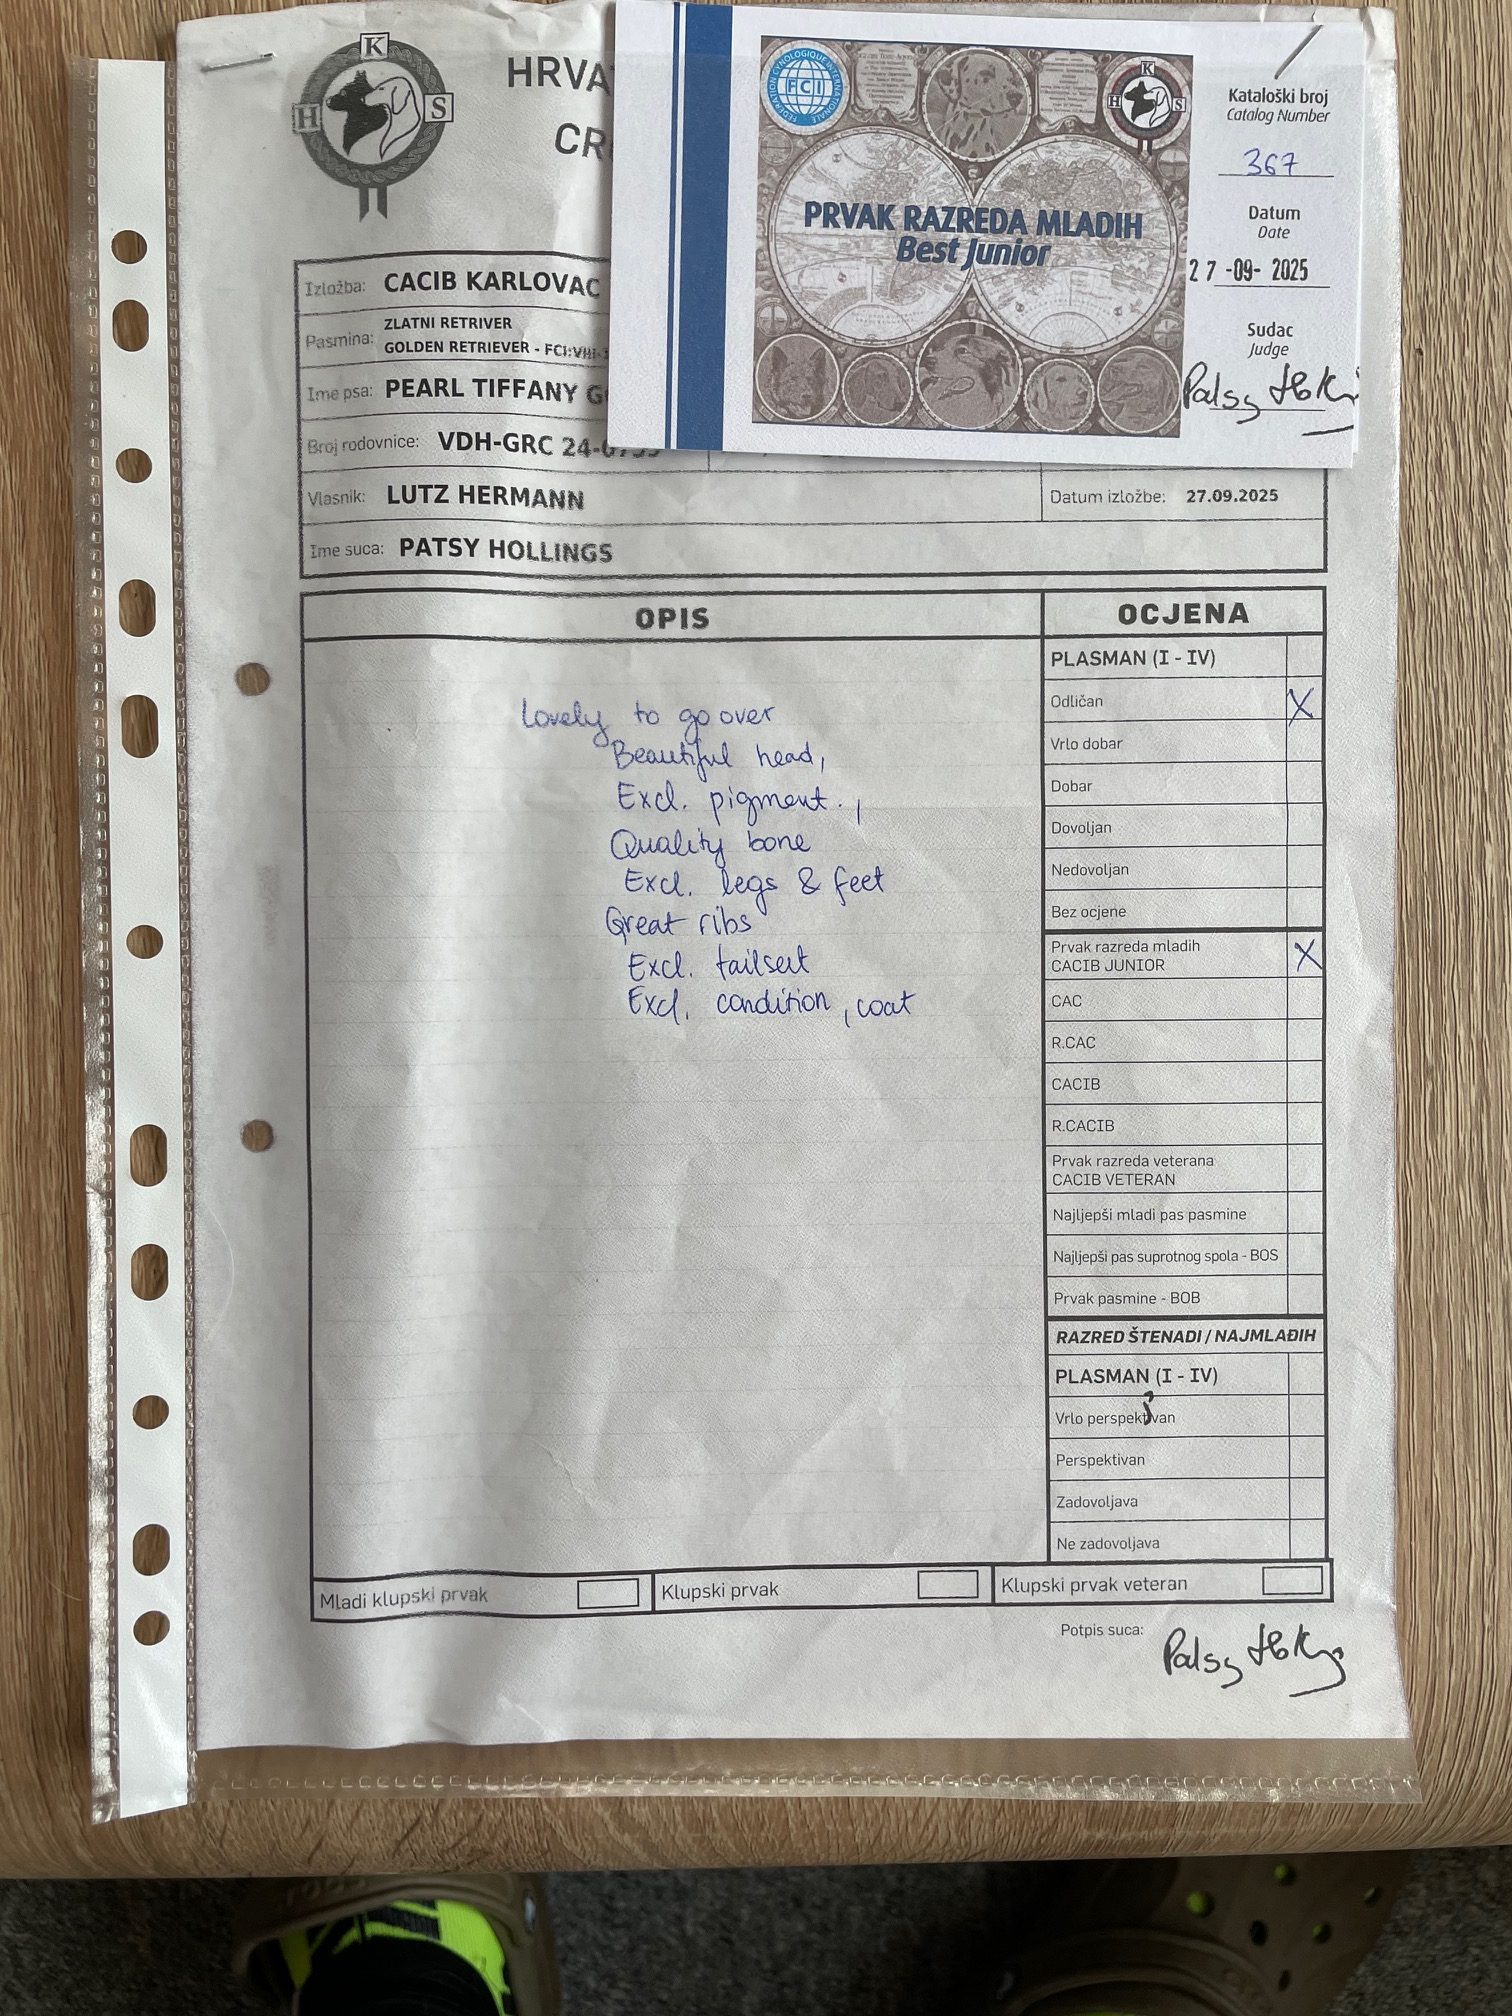 K
H S
HRVA
CR
FCI
FEDERATION CYNOLOGIQUE INTERNATIONALE
K
H S
PRVAK RAZREDA MLADIH
Best Junior
Kataloški broj
Catalog Number
367
Datum
Date
27-09-2025
Sudac
Judge
Patsy
Izložba: CACIB KARLOVAC
Pasmina: ZLATNI RETRIVER
GOLDEN RETRIEVER - FCI:VIII-
Ime psa: PEARL TIFFANY G
Broj rodovnice: VDH-GRC 24-
Vlasnik: LUTZ HERMANN
Datum izložbe: 27.09.2025
Ime suca: PATSY HOLLINGS
OPIS
Lovely to go over
Beautiful head,
Excl. pigment.,
Quality bone
Excl. legs & feet
Great ribs
Excl. tailset
Excl. condition, coat
OCJENA
PLASMAN (I - IV)
Odličan X
Vrlo dobar
Dobar
Dovoljan
Nedovoljan
Bez ocjene
Prvak razreda mladih
CACIB JUNIOR X
CAC
R.CAC
CACIB
R.CACIB
Prvak razreda veterana
CACIB VETERAN
Najljepši mladi pas pasmine
Najljepši pas suprotnog spola - BOS
Prvak pasmine - BOB
RAZRED ŠTENADI / NAJMLAĐIH
PLASMAN (I - IV)
Vrlo perspektivan
Perspektivan
Zadovoljava
Ne zadovoljava
Mladi klupski prvak
Klupski prvak
Klupski prvak veteran
Potpis suca:
Patsy